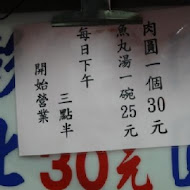 肉圓一個30元
魚丸湯一碗25元
每日下午
三點半
開始營業
30元